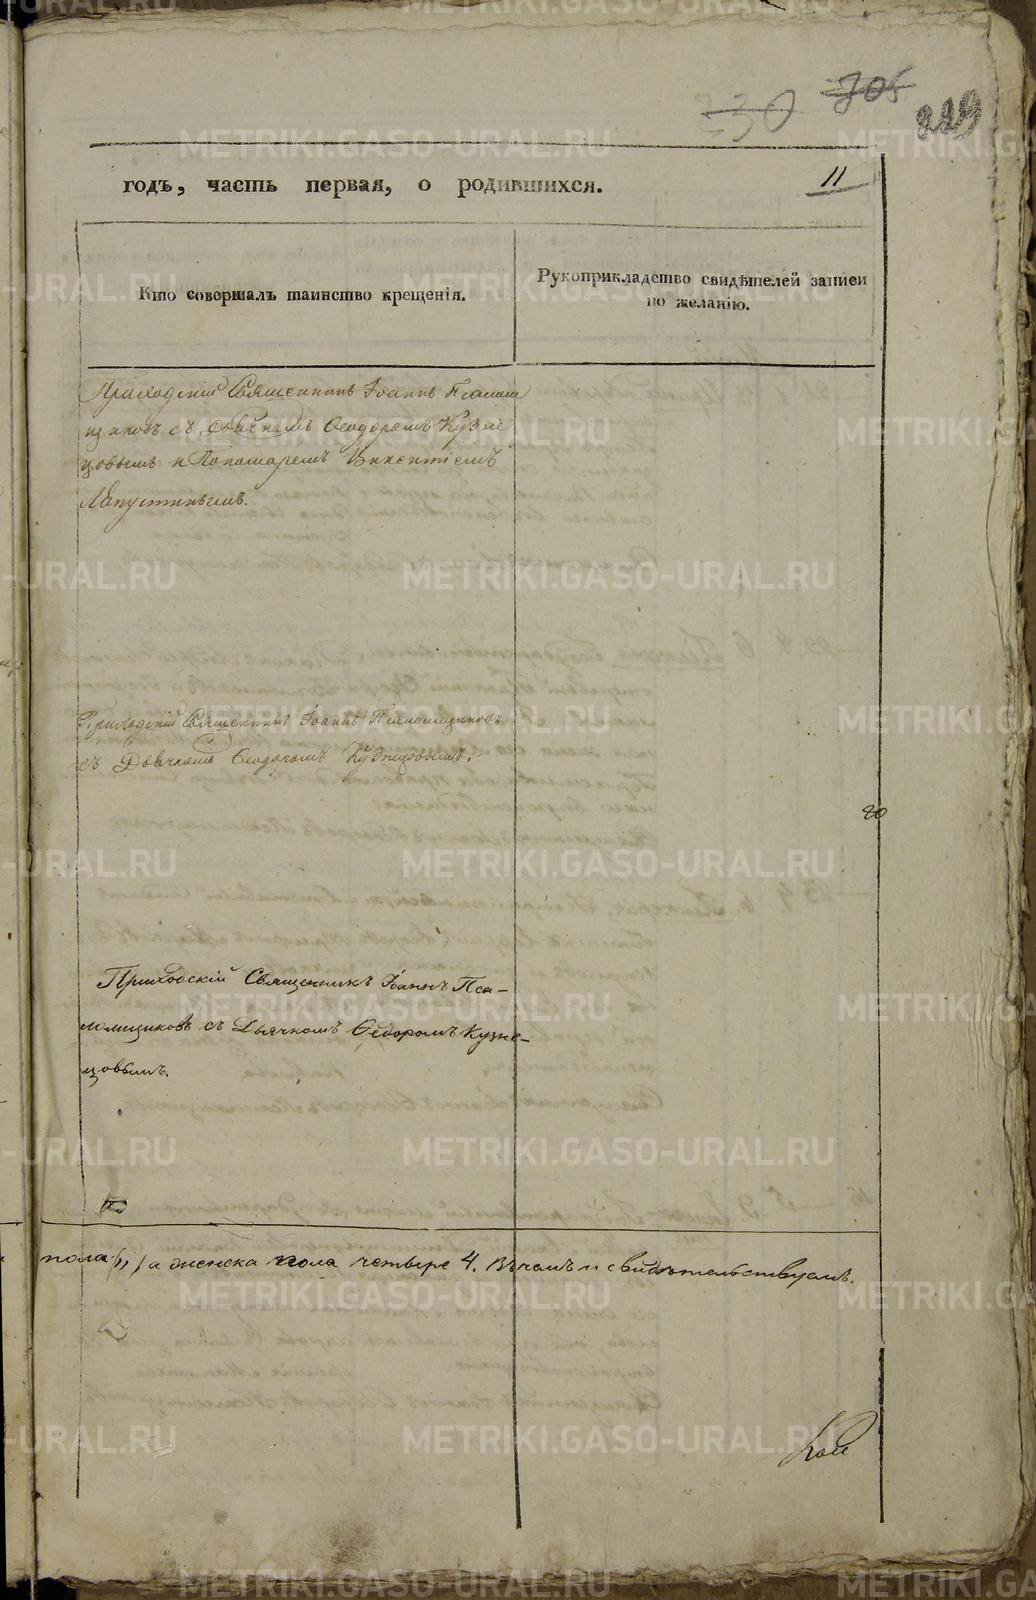 230 705 229
годъ, часть первая, о родившихся. 11
Кто совершалъ таинство крещенія.
Рукоприкладство свидѣтелей записи
по желанію.
Приходскій Священникъ Іоаннъ Псалом
щиковъ съ дьячкомъ Ѳеодоромъ Кузне
цовымъ и Пономаремъ Викентіемъ
Лапустинымъ.
Приходскій Священникъ Іоаннъ Псаломщиковъ
съ Дьячкомъ Ѳеодоромъ Кузнецовымъ.
20
Приходскій Священникъ Іоаннъ Пса-
ломщиковъ съ Дьячкомъ Ѳедоромъ Кузне-
цовымъ.
пола (11) а женска пола четыре 4. Въ чемъ и свидѣтельствуемъ.
METRIKI.GASO-URAL.RU